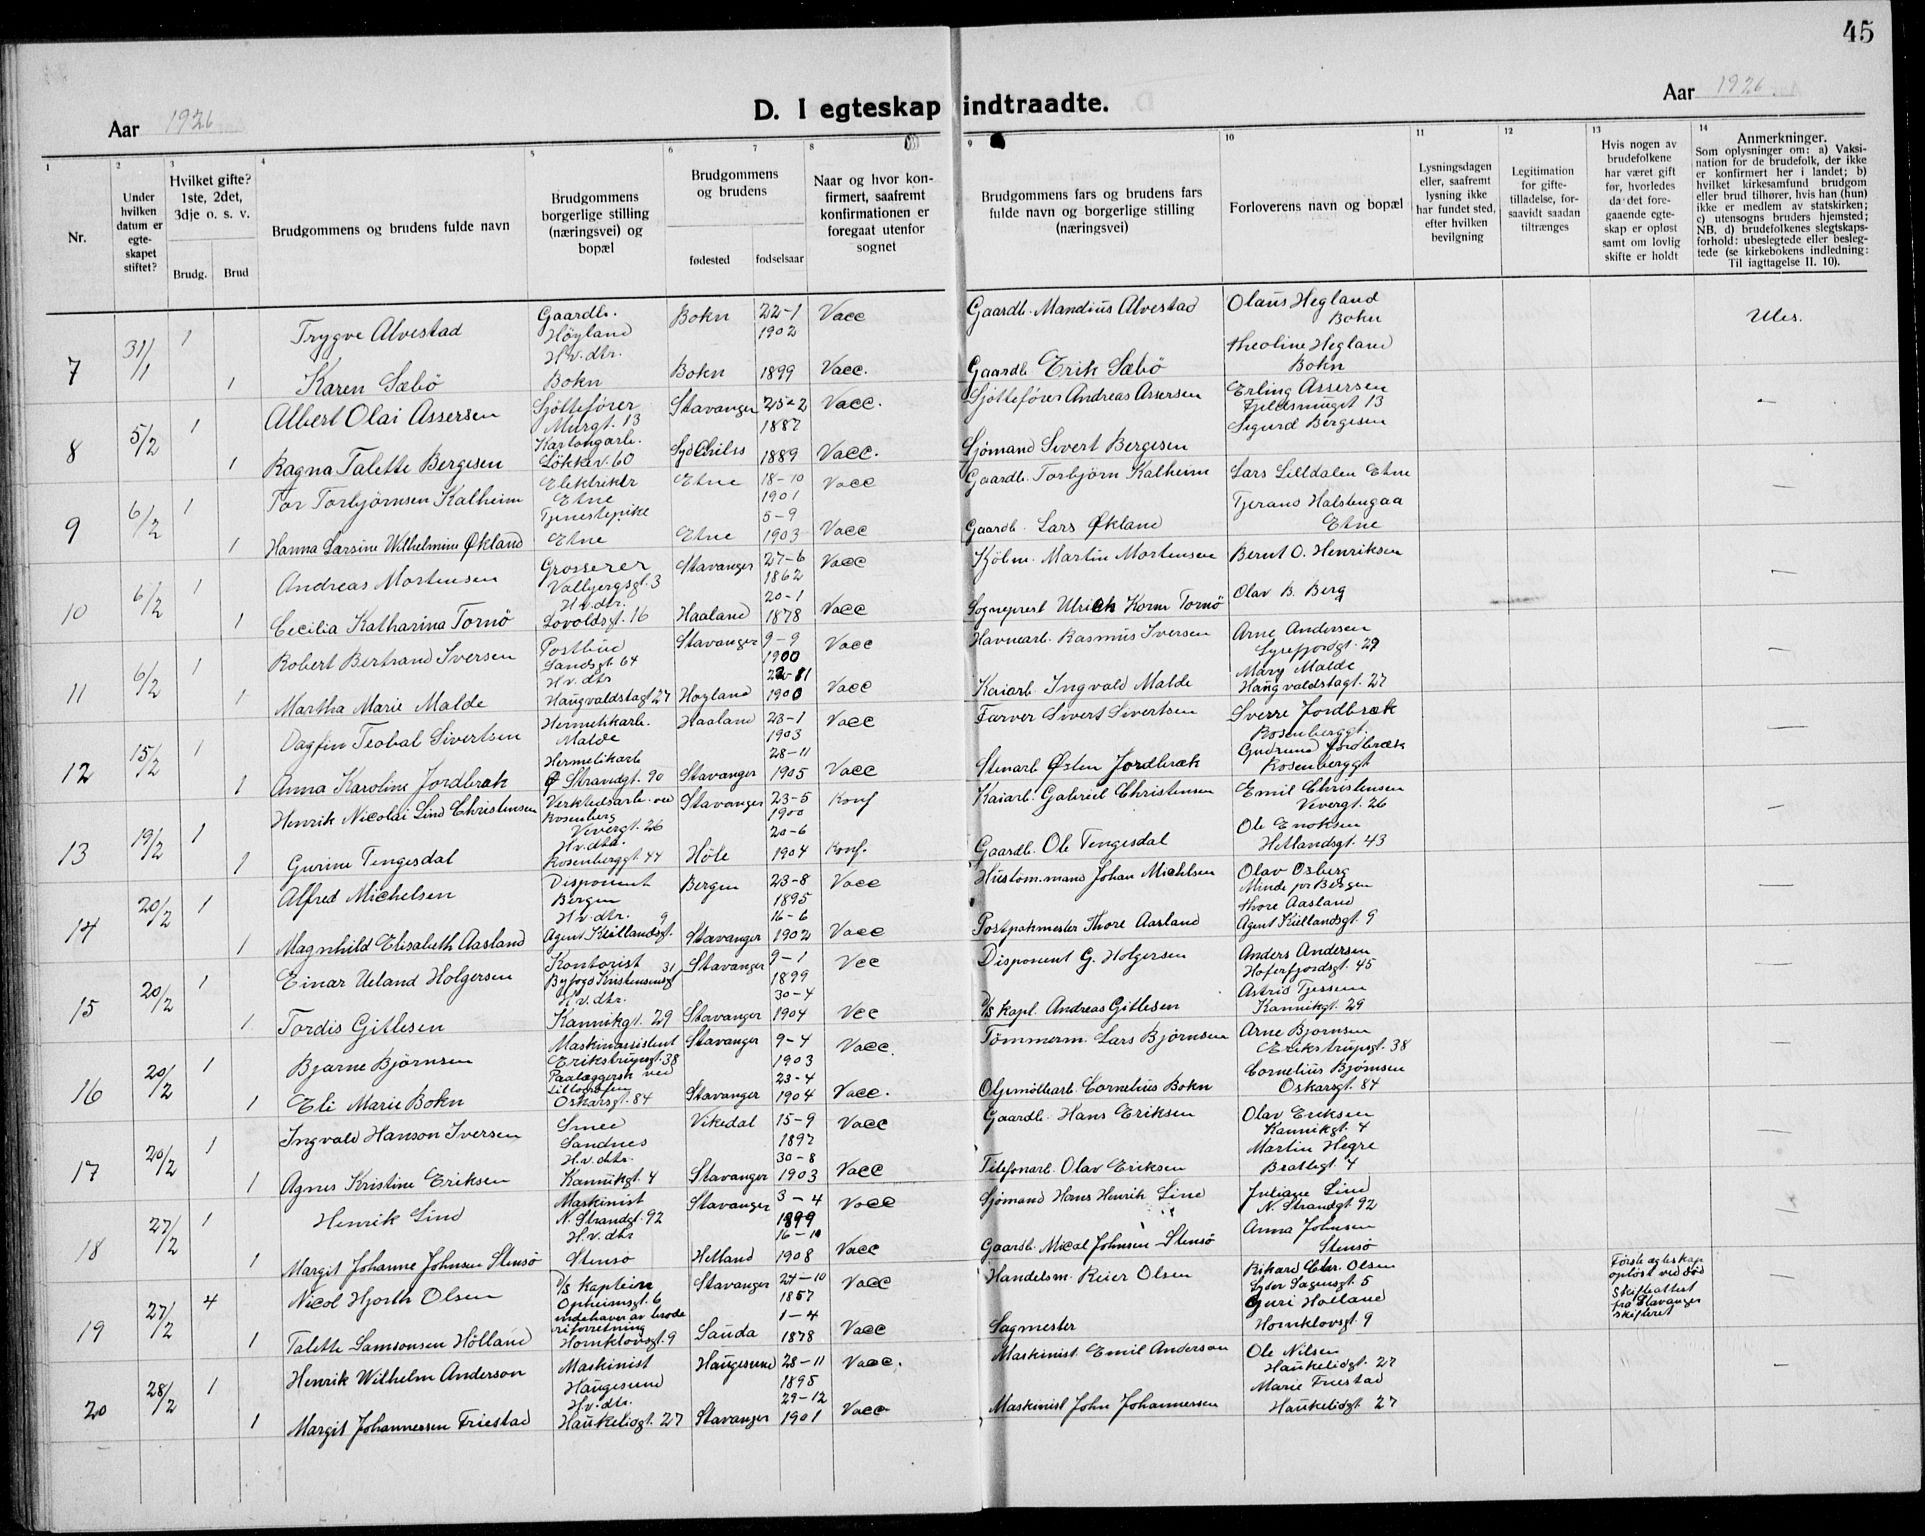 45
Aar 1926
D. I egteskap indtraadte.
Aar 1926
1 2 3 4 5 6 7 8 9 10 11 12 13 14
Nr.
Under hvilken datum er egteskapet stiftet?
Hvilket gifte? 1ste, 2det, 3dje o. s. v.
Brudg. Brud
Brudgommens og brudens fulde navn
Brudgommens borgerlige stilling (næringsvei) og bopæl
Brudgommens og brudens
fødested fødselsaar
Naar og hvor konfirmert, saafremt konfirmationen er foregaat utenfor sognet
Brudgommens fars og brudens fars fulde navn og borgerlige stilling (næringsvei)
Forloverens navn og bopæl
Lysningsdagen eller, saafremt lysning ikke har fundet sted, efter hvilken bevilgning
Legitimation for giftetilladelse, forsaavidt saadan tiltrænges
Hvis nogen av brudefolkene har været gift før, hvorledes da det foregaaende egteskap er opløst samt om lovlig skifte er holdt
Anmerkninger.
Som oplysninger om: a) Vaksination for de brudefolk, der ikke er konfirmert her i landet; b) hvilket kirkesamfund brudgom eller brud tilhører, hvis han (hun) ikke er medlem av statskirken; c) utensogns bruders hjemsted; NB. d) brudefolkenes slegtskapsforhold: ubeslegtede eller beslegtede (se kirkebokens indledning: Til iagttagelse II. 10).
7 31/1 1 Trygve Alvestad Gaardbr. Høyland Bokn 22-1 1902 Vacc Gaardb. Mandius Alvestad Olaus Hegland Bokn Ubes.
1 Karen Sæbö H.v.dtr. Bokn Bokn 1899 Vacc. Gaardb. Erik Sæbö Theoline Hegland Bokn
8 5/2 1 Albert Olai Assersen Sjöttefører Murgt. 13 Stavanger 25-2 1887 Vacc. Sjöttefører Andreas Assersen Erling Assersen Fjeldsmuget 13 —
1 Ragna Talette Bergesen Kartongarb. Løkkev. 60 1889 Vacc. Sjömand Sivert Bergesen Sigurd Bergesen
9 6/2 1 Tor Torbjørnsen Kalheim Elektriker Etne Etne 18-10 1901 Vacc Gaardb. Torbjörn Kalheim Lars Lilldalen Etne —
1 Hanna Larsine Wilhelmine Økland Tjenestepike Etne Etne 5-9 1903 Vacc Gaardb. Lars Økland Tjerand Etne
10 6/2 1 Andreas Mortensen Grosserer Valbjergsgt. 3 Stavanger 27-6 1862 Vacc Kjöbm. Martin Mortensen Bernt O. Henriksen —
1 Cecilia Katharina Tornö H.v.dtr. Lovoldsgt. 16 Haaland 20-1 1878 Vacc Sogneprest Ulrick Korm Tornö Olav B. Berg
11 6/2 1 Robert Bertrand Iversen Postbud Sandsgt. 64 Stavanger 9-9 1900 Vacc Havnearb. Rasmus Iversen Arne Andersen Lysefjordgt. 29 —
1 Martha Marie Malde H.v.dtr Haugvaldstagt 27 Høyland 1900 Vacc Kaiarb. Ingvald Malde Mary Malde Haugvaldstagt. 27
12 15/2 1 Dagfin Teobal Sivertsen Hermetikarb. Malde Haaland 23-1 1903 Vacc Farver Sivert Sivertsen Sverre Jordbræk Rosenberggt. —
1 Anna Karoline Jordbræk Hermetikarb Ø Strandgt. 90 Stavanger 28-11 1905 Vacc Stenarb Østen Jordbræk Gudrund Jordbræk Rosenberggt
13 19/2 1 Henrik Nicolai Lind Christensen Verkstedsarb. ved Rosenberg Vevergt. 26 Stavanger 23-5 1900 Konf Kaiarb. Gabriel Christensen Emil Christensen Vevergt. 26 —
1 Gurine Tengesdal H.v.dtr. Rosenberggt 44 Höle 20-6 1904 Konf. Gaardb. Ole Tengesdal Ole Enoksen Hetlandsgt. 43
14 20/2 1 Alfred Michelsen Disponent Bergen Bergen 23-8 1895 Vacc Hustöm.mand Johan Michelsen Olav Osberg Minde pr Bergen —
1 Magnhild Elisabeth Aasland H.v.dtr. Agent Kiellandsgt. 9 Stavanger 16-6 1902 Vacc Postpakmester Thore Aasland Thore Aasland Agent Kiellandsgt. 9
15 20/2 1 Einar Ueland Holgersen Kontorist Byfogd Kristensensgt 31 Stavanger 9-1 1899 Vcc Disponent G. Holgersen Anders Andersen Hafrfjordsgt. 45 —
1 Tordis Gitlesen H.v.dtr. Kannikgt. 29 Stavanger 30-4 1904 Vcc D/S Kapt. Andreas Gitlesen Astrid Tjessem Kannikgt. 29
16 20/2 1 Bjarne Bjørnsen Maskinassistent Erikstrupsgt. 38 Stavanger 9-4 1903 Vacc. Tømmerm. Lars Bjørnsen Arne Bjornsen Erikstrupsgt. 38 —
1 Eli Marie Bokn Paalæggersk ved Litografen Oskarsgt. 84 Stavanger 23-4 1904 Vacc. Oljemöllearb. Cornelius Bokn Cornelius Bjørnsen Oskarsgt. 84
17 20/2 1 Ingvald Hanson Iversen Smed Sandnes Vikedal 15-9 1897 Vacc Gaardb. Hans Eriksen Olav Eriksen Kannikgt. 4 —
1 Agnes Kristine Eriksen H.v.dtr. Kannikgt. 4 Stavanger 30-8 1903 Vacc Telefonarb. Olav Eriksen Martin Hegre Brattegt. 4
18 27/2 1 Henrik Lind Maskinist N. Strandgt. 92 Stavanger 3-4 1899 Vacc Sjömand Hans Henrik Lind Juliane Lind N. Strandgt 92
1 Margit Johanne Johnsen Stensö H.v.dtr Stensö Hetland 16-10 1908 Vacc Gaardb. Micael Johnsen Stensö Anna Johnsen Stensö
19 27/2 4 Nicol Hjorth Olsen D/S Kaptein Opheimsgt. 6 Stavanger 24-10 1857 Vacc Handelsm. Reier Olsen Rikard Chr. Olsen Lyder Sagensgt. 5 Første egteskap opløst ved död Skifteattest fra Stavanger skifteret
1 Talette Samsonsen Hölland indehaver av broderiforretning Hornklovsgt. 9 Sauda 1-4 1878 Vacc Sagmester Guri Holland Hornklovsgt. 9
20 28/2 1 Henrik Wilhelm Anderson Maskinist Haugesund Haugesund 28-11 1895 Vacc. Maskinist Emil Anderson Ole Nilsen Haukelidgt. 27 —
1 Margit Johannessen Friestad H.v.dtr. Haukelidgt. 27 Stavanger 29-12 1901 Vacc Maskinist John Johannessen Marie Friestad Haukelidgt 27